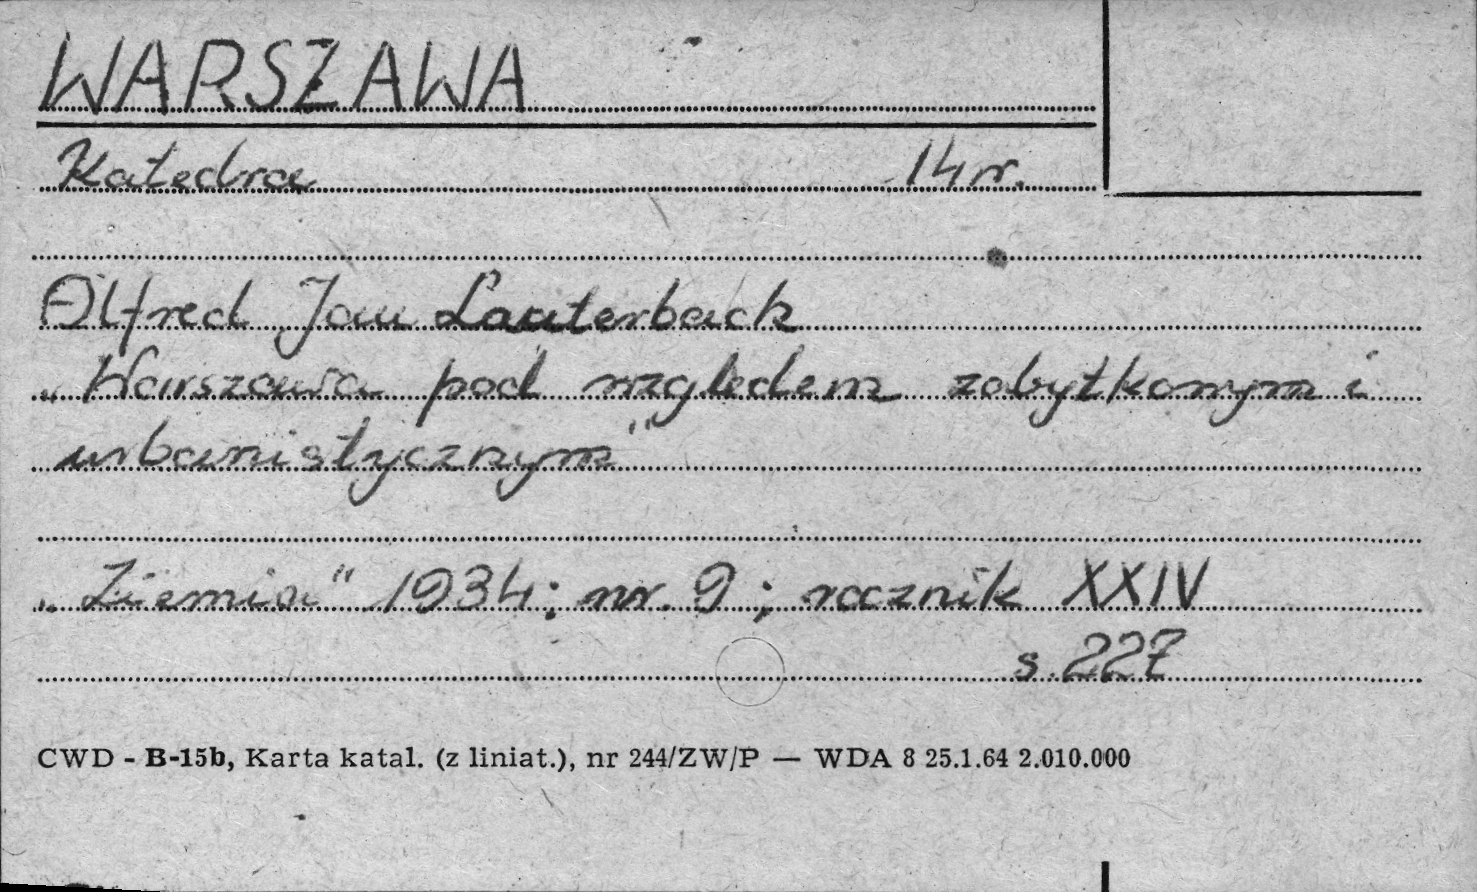 WARSZAWA
Katedra 14 w.
Alfred Jan Lauterback
„Warszawa pod względem zabytkowym i
urbanistycznym"
„Ziemia" 1934; nr. 9; rocznik XXIV
s. 227
CWD - B-15b, Karta katal. (z liniat.), nr 244/ZW/P — WDA 8 25.1.64 2.010.000